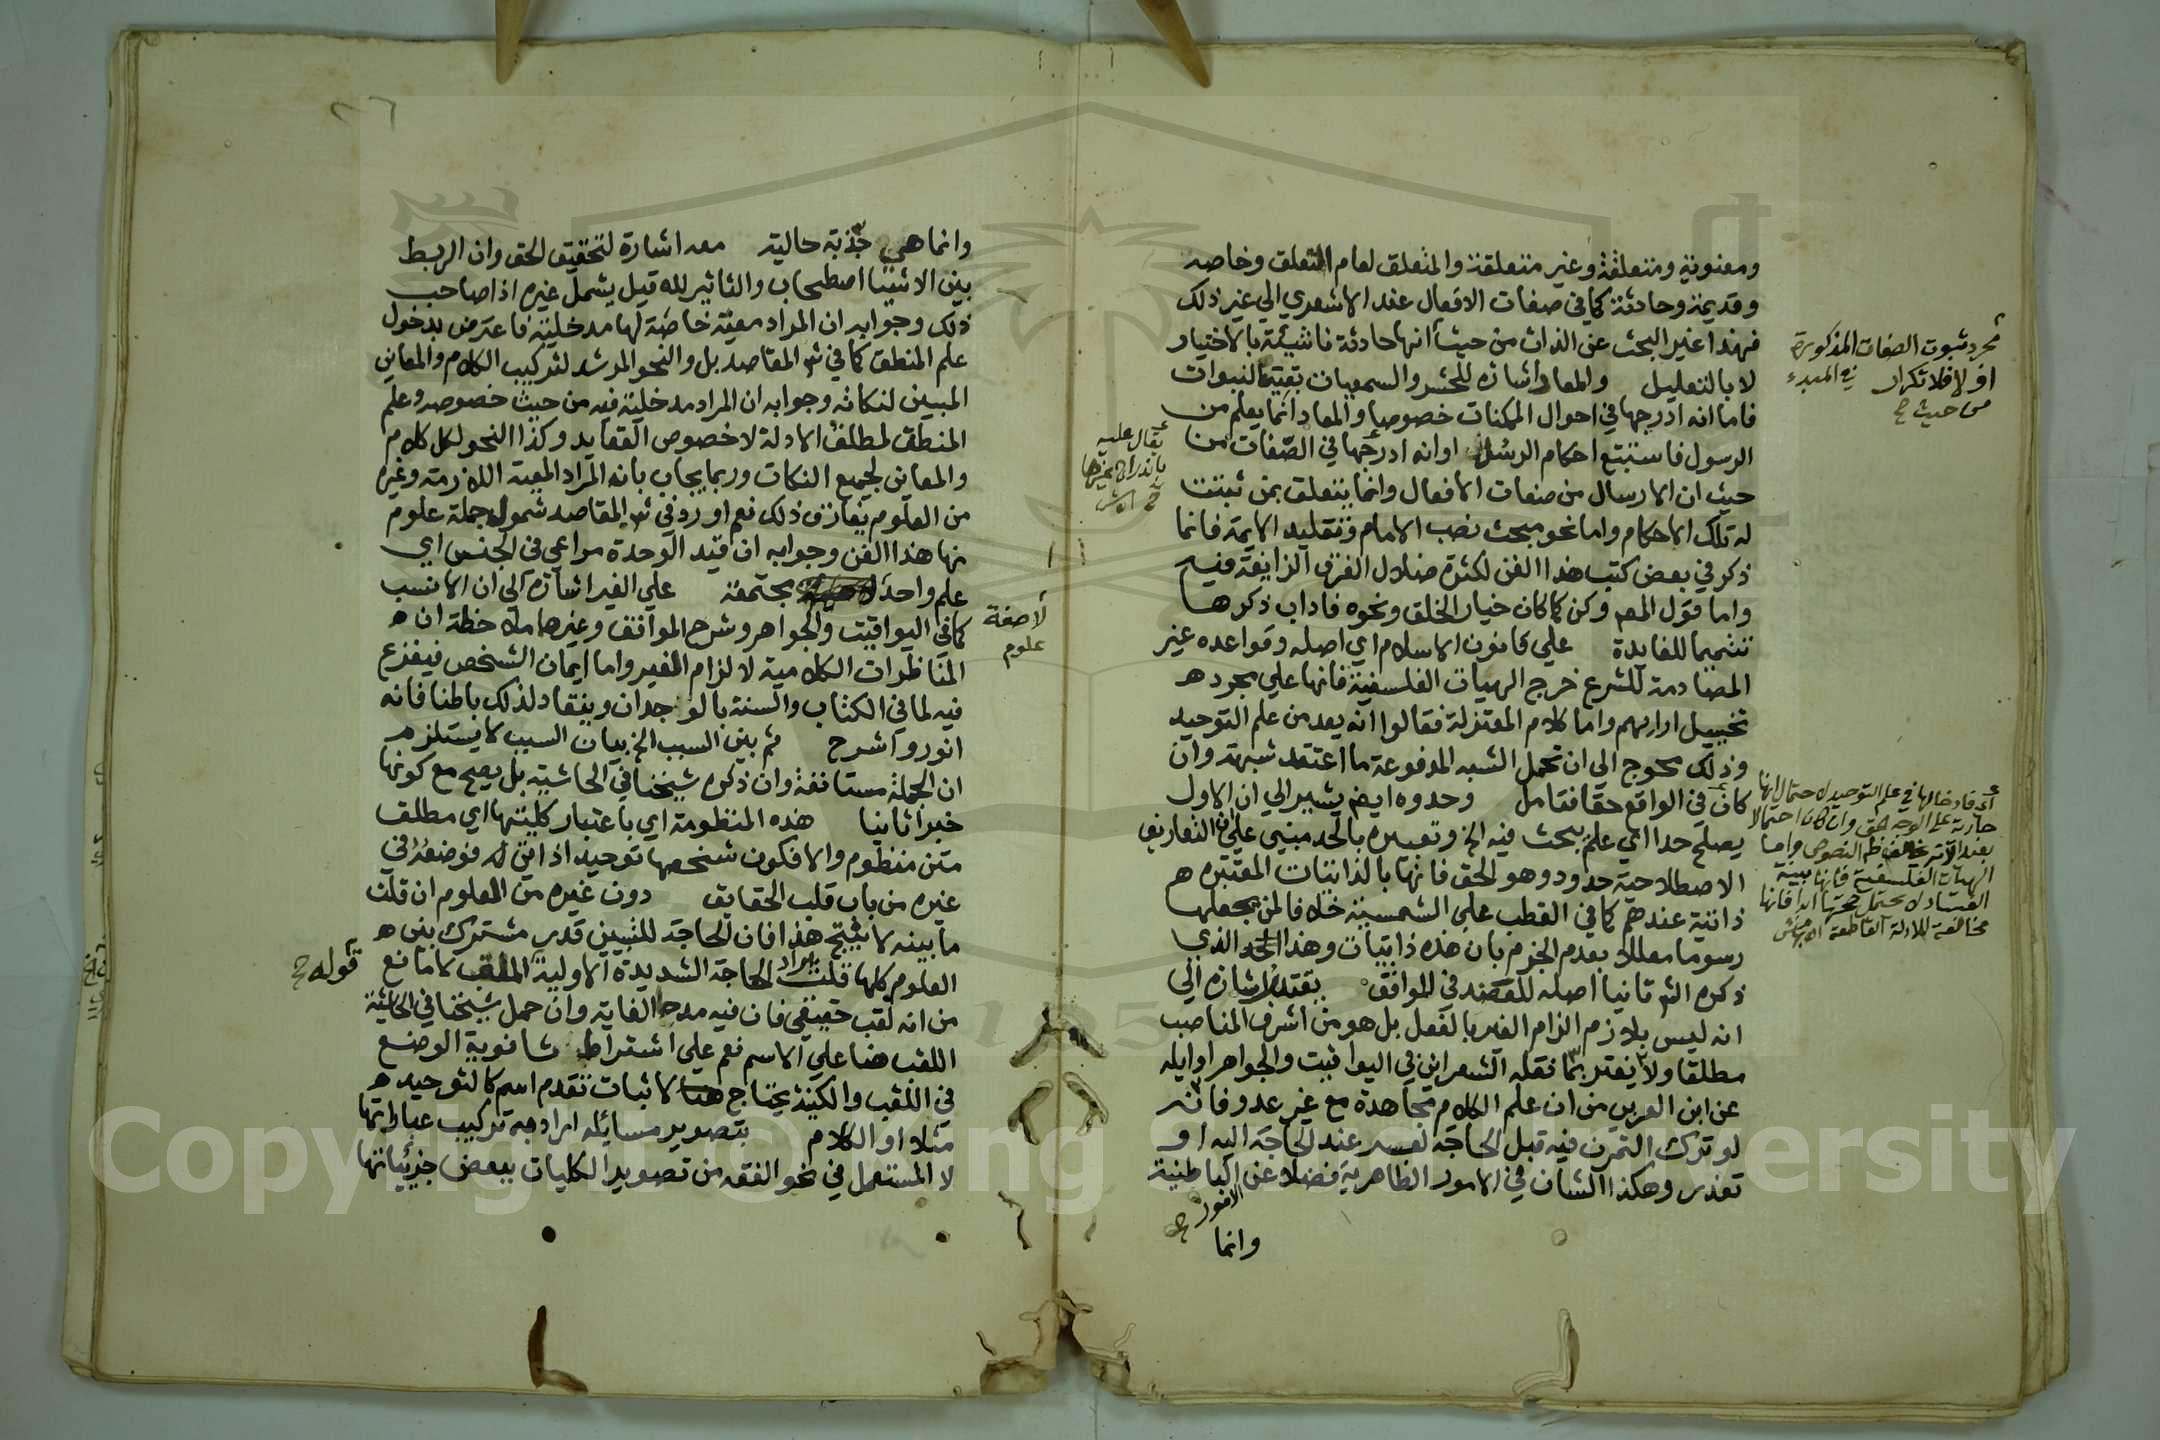 ومعنوية ومتعلقة وغير متعلقة والمتعلق لعام التعلق وخاصه
وقديمة وحادثة كما في صفات الافعال عند الاشعري الي غير ذلك
فهذا غير البحث عن الذات من حيث انها حادثة ناشئة بالاختيار
لا بالتعليل والمعاد اشارة للحشر والسمعيات بقيتها النبوات
فاما انه ادرجها في احوال الممكنات خصوصا والمعاد انما يعلم من
الرسول فاستتبع احكام الرسل او انه ادرجها في الصفات من
حيث ان الارسال من صفات الافعال وانما يتعلق بمن ثبتت
له تلك الاحكام واما نحو مبحث نصب الامام وتقليد الايمة فانما
ذكر في بعض كتب هذا الفن لكثرة ضلال الفرق الزايغة فيه
واما قول المص وكن كما كان خيار الخلق ونحوه فاداب ذكرها
تتميما للفايدة علي قانون الاسلام اي اصله وقواعده غير
المصادمة للشرع خرج الهيات الفلسفية فانها علي مجرد
تخييل اوايلهم واما كلام المعتزلة فقالوا انه يعد من علم التوحيد
وذلك محوج الي ان تحمل الشبه المدفوعة ما اعتقد شبهة وان
كان في الواقع حقا فتامل وحدوه ايضا يشير الي ان الاول
يصلح حدا اي علم يبحث فيه الخ وتعبيره بالحد مبني علي ان التعاريف
الاصطلاحية حدود وهو الحق فانها بالذاتيات المعتبرة
ذاتية عندهم كما في القطب علي الشمسية خلافا لمن يجعلها
رسوما معللا بعدم الجزم بان هذه ذاتيات وهذا الحد الذي
ذكره الش ثانيا اصله للعضد في المواقف يقتدر اشارة الي
انه ليس بلازم الزام الغير بالفعل بل هو من اشرف المناصب
مطلقا ولا يغتر بما نقله الشعراني في اليواقيت والجواهر اوايله
عن ابن العربي من ان علم الكلام مجاهدة مع غير عدو فانه
لو ترك التمرن فيه قبل الحاجة لعسر عند الحاجة اليه او
تعذر وهكذا الشان في الامور الظاهرية فضلا عن الباطنية
الامور صح
وانما
مجرد ثبوت الصفات المذكورة
اولا فلا تكرار في المبدء
من حيث صح
يقال عليه
اي فادخالها في علم التوحيد لاحتمال انها
جارية علي الوجه الحق وان كان احتمالا
النصوص واما
الهيات الفلسفية فانها مبنية
مخالفة للادلة القاطعة
وانما هي جذبة حالية معه اشارة لتحقيق الحق وان الربط
بين الاشيا اصطحاب والتاثير لله قيل يشمل غيره اذا صاحب
ذلك وجوابه ان المراد معية خاصة لها مدخلية فاعترض بدخول
علم المنطق كما في ش المقاصد بل والنحو المرشد لتركيب الكلام والمعاني
المبين لنكاته وجوابه ان المراد مدخلية فيه من حيث خصوصه وعلم
المنطق لمطلق الادلة لا خصوص العقايد وكذا النحو لكل كلام
والمعاني لجميع النكات وربما يجاب بانه المراد المعية اللازمة وغيره
من العلوم يفارق ذلك نعم اورد في ش المقاصد شموله جملة علوم
منها هذا الفن وجوابه ان قيد الوحدة مراعي في الجنس اي
علم واحد مجتمعة علي الغير اشارة الي ان الانسب
كما في اليواقيت والجواهر وشرح المواقف وغيرها ملاحظة ان
المناظرات الكلامية لالزام الغير واما ايمان الشخص فيفزع
فيه لما في الكتاب والسنة بالوجدان وينقاد لذلك باطنا فانه
انور واشرح ثم بين السبب الخ بيان السبب لا يستلزم
ان الجملة مستانفة وان ذكره شيخنا في الحاشية بل يصح مع كونها
خبرا ثانيا هذه المنظومة اي باعتبار كليتها اي مطلق
متن منظوم والا فكون شخصها توحيدا ذاتي له فوضعه في
غيره من باب قلب الحقايق دون غيره من العلوم ان قلت
ما بينه لا ينتج هذا فان الحاجة للتبيين قدر مشترك بين
العلوم كلها قلت يراد الحاجة الشديدة الاولية الملقب لا مانع
من انه لقب حقيقي فان فيه مدحا لغاية وان حمل شيخنا في الحاشية
اللقب هنا علي الاسم نعم علي اشتراط ثانوية الوضع
في اللقب والكنية يحتاج هنا لاثبات تقدم اسم كالتوحيد
مثلا او الكلام بتصوير مسائله اراد به تركيب عباراتها
لا المستعمل في نحو الفقه من تصوير الكليات ببعض جزيياتها
لا صفة
علوم
قوله صح
Copyright © King Saud University